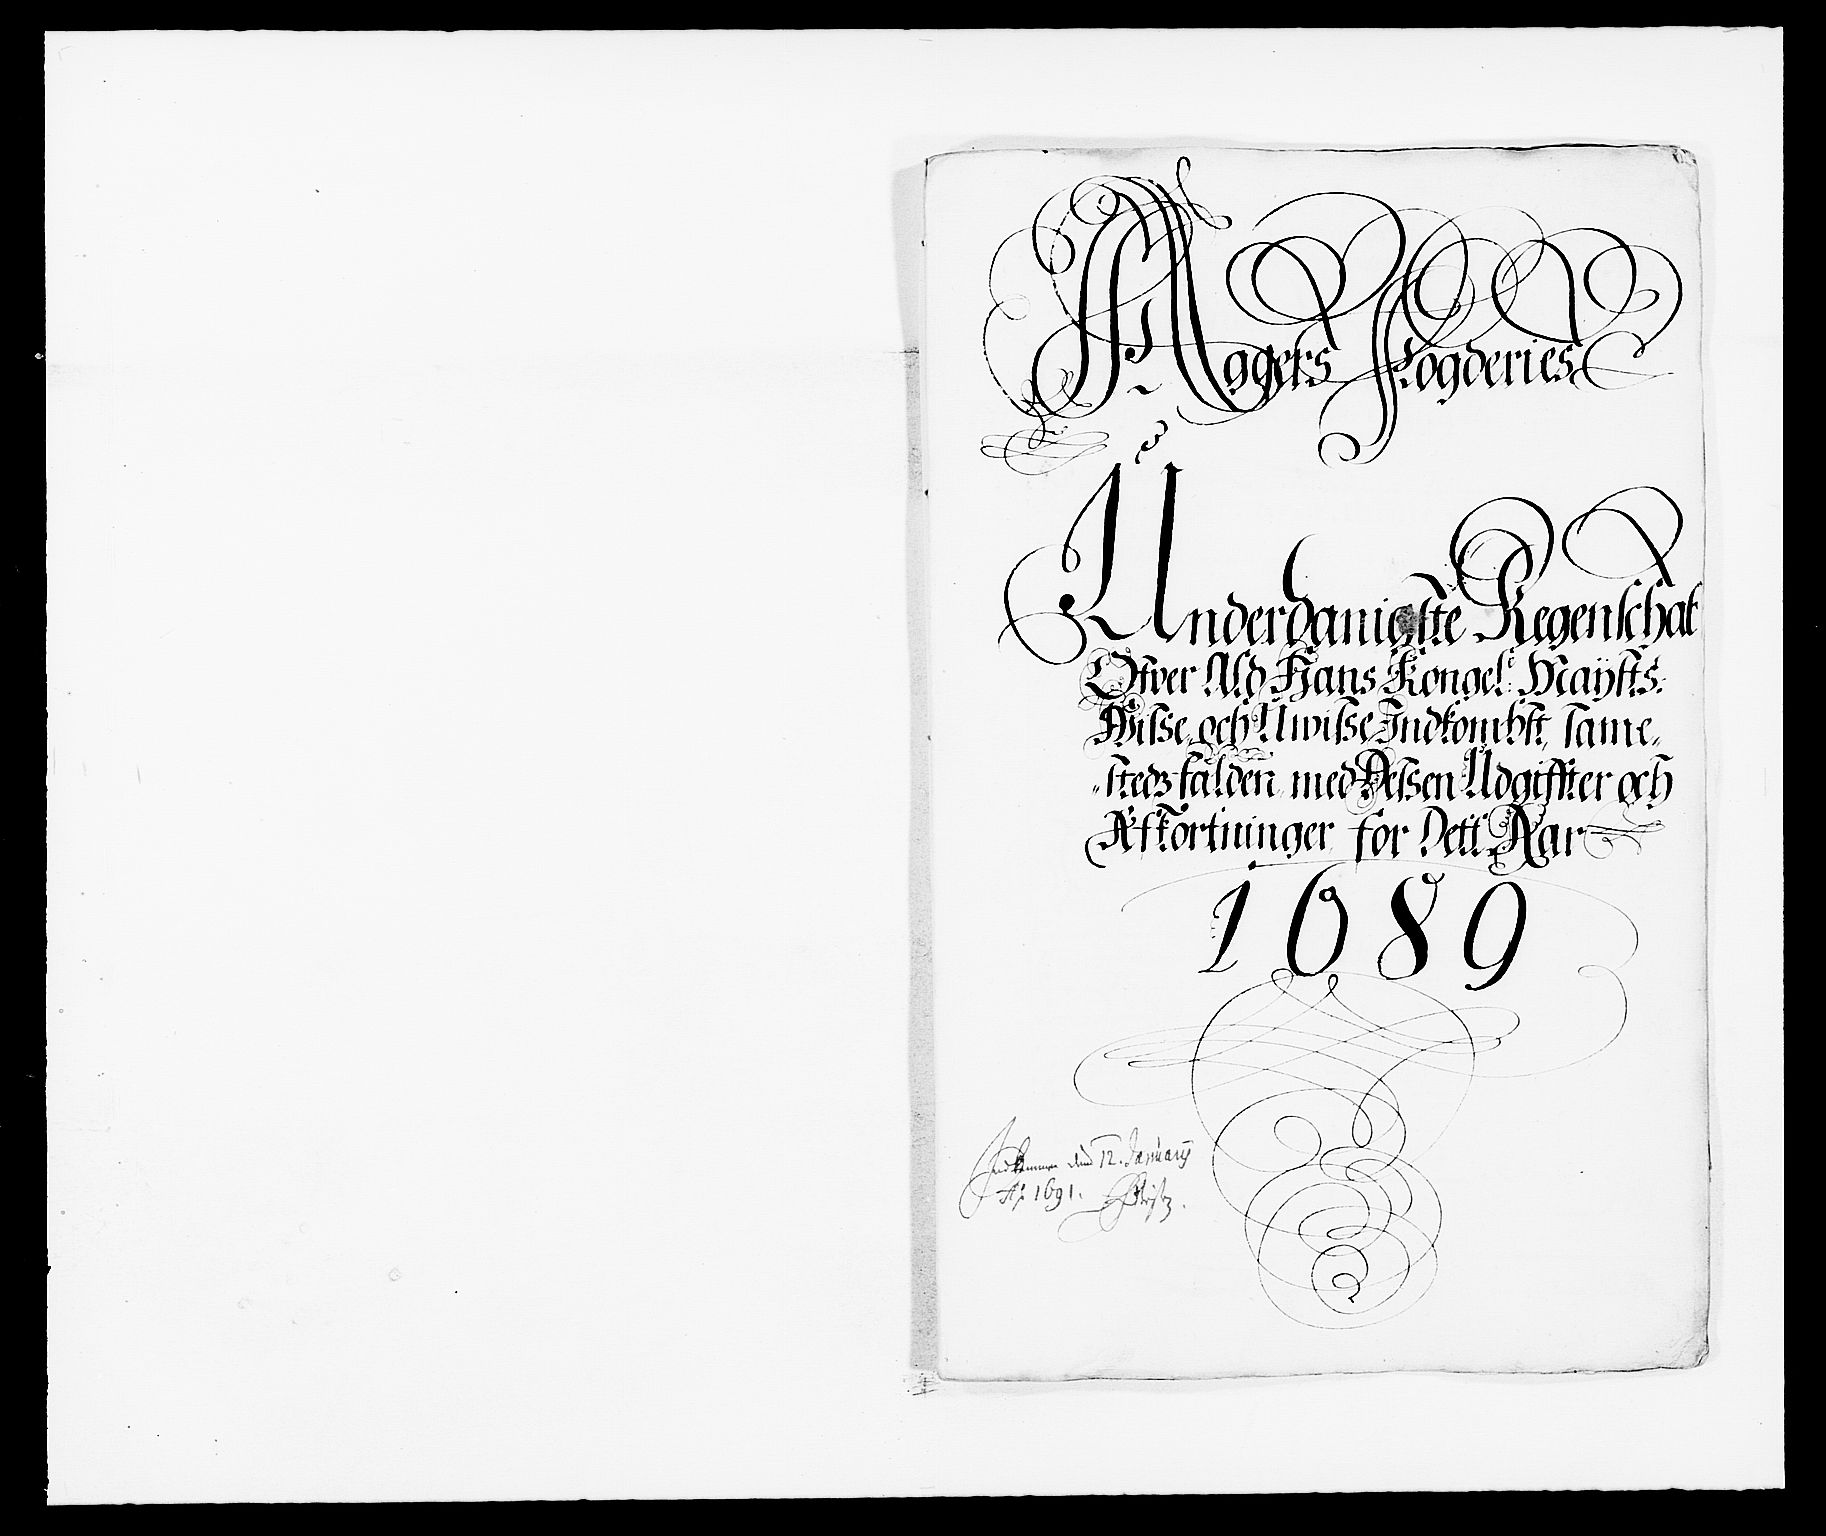 Aggers Fogderies
Underdanigste Regenschab
Ofver Ald Hans Kongel: Maysts:
Wisse, och Uwisse Indkombst, same„
„stedz falden, med Dessen Udgiffter och
Afkortninger, for Dett Aar
1689
Indkommen dend 12. January
Aº 1691.